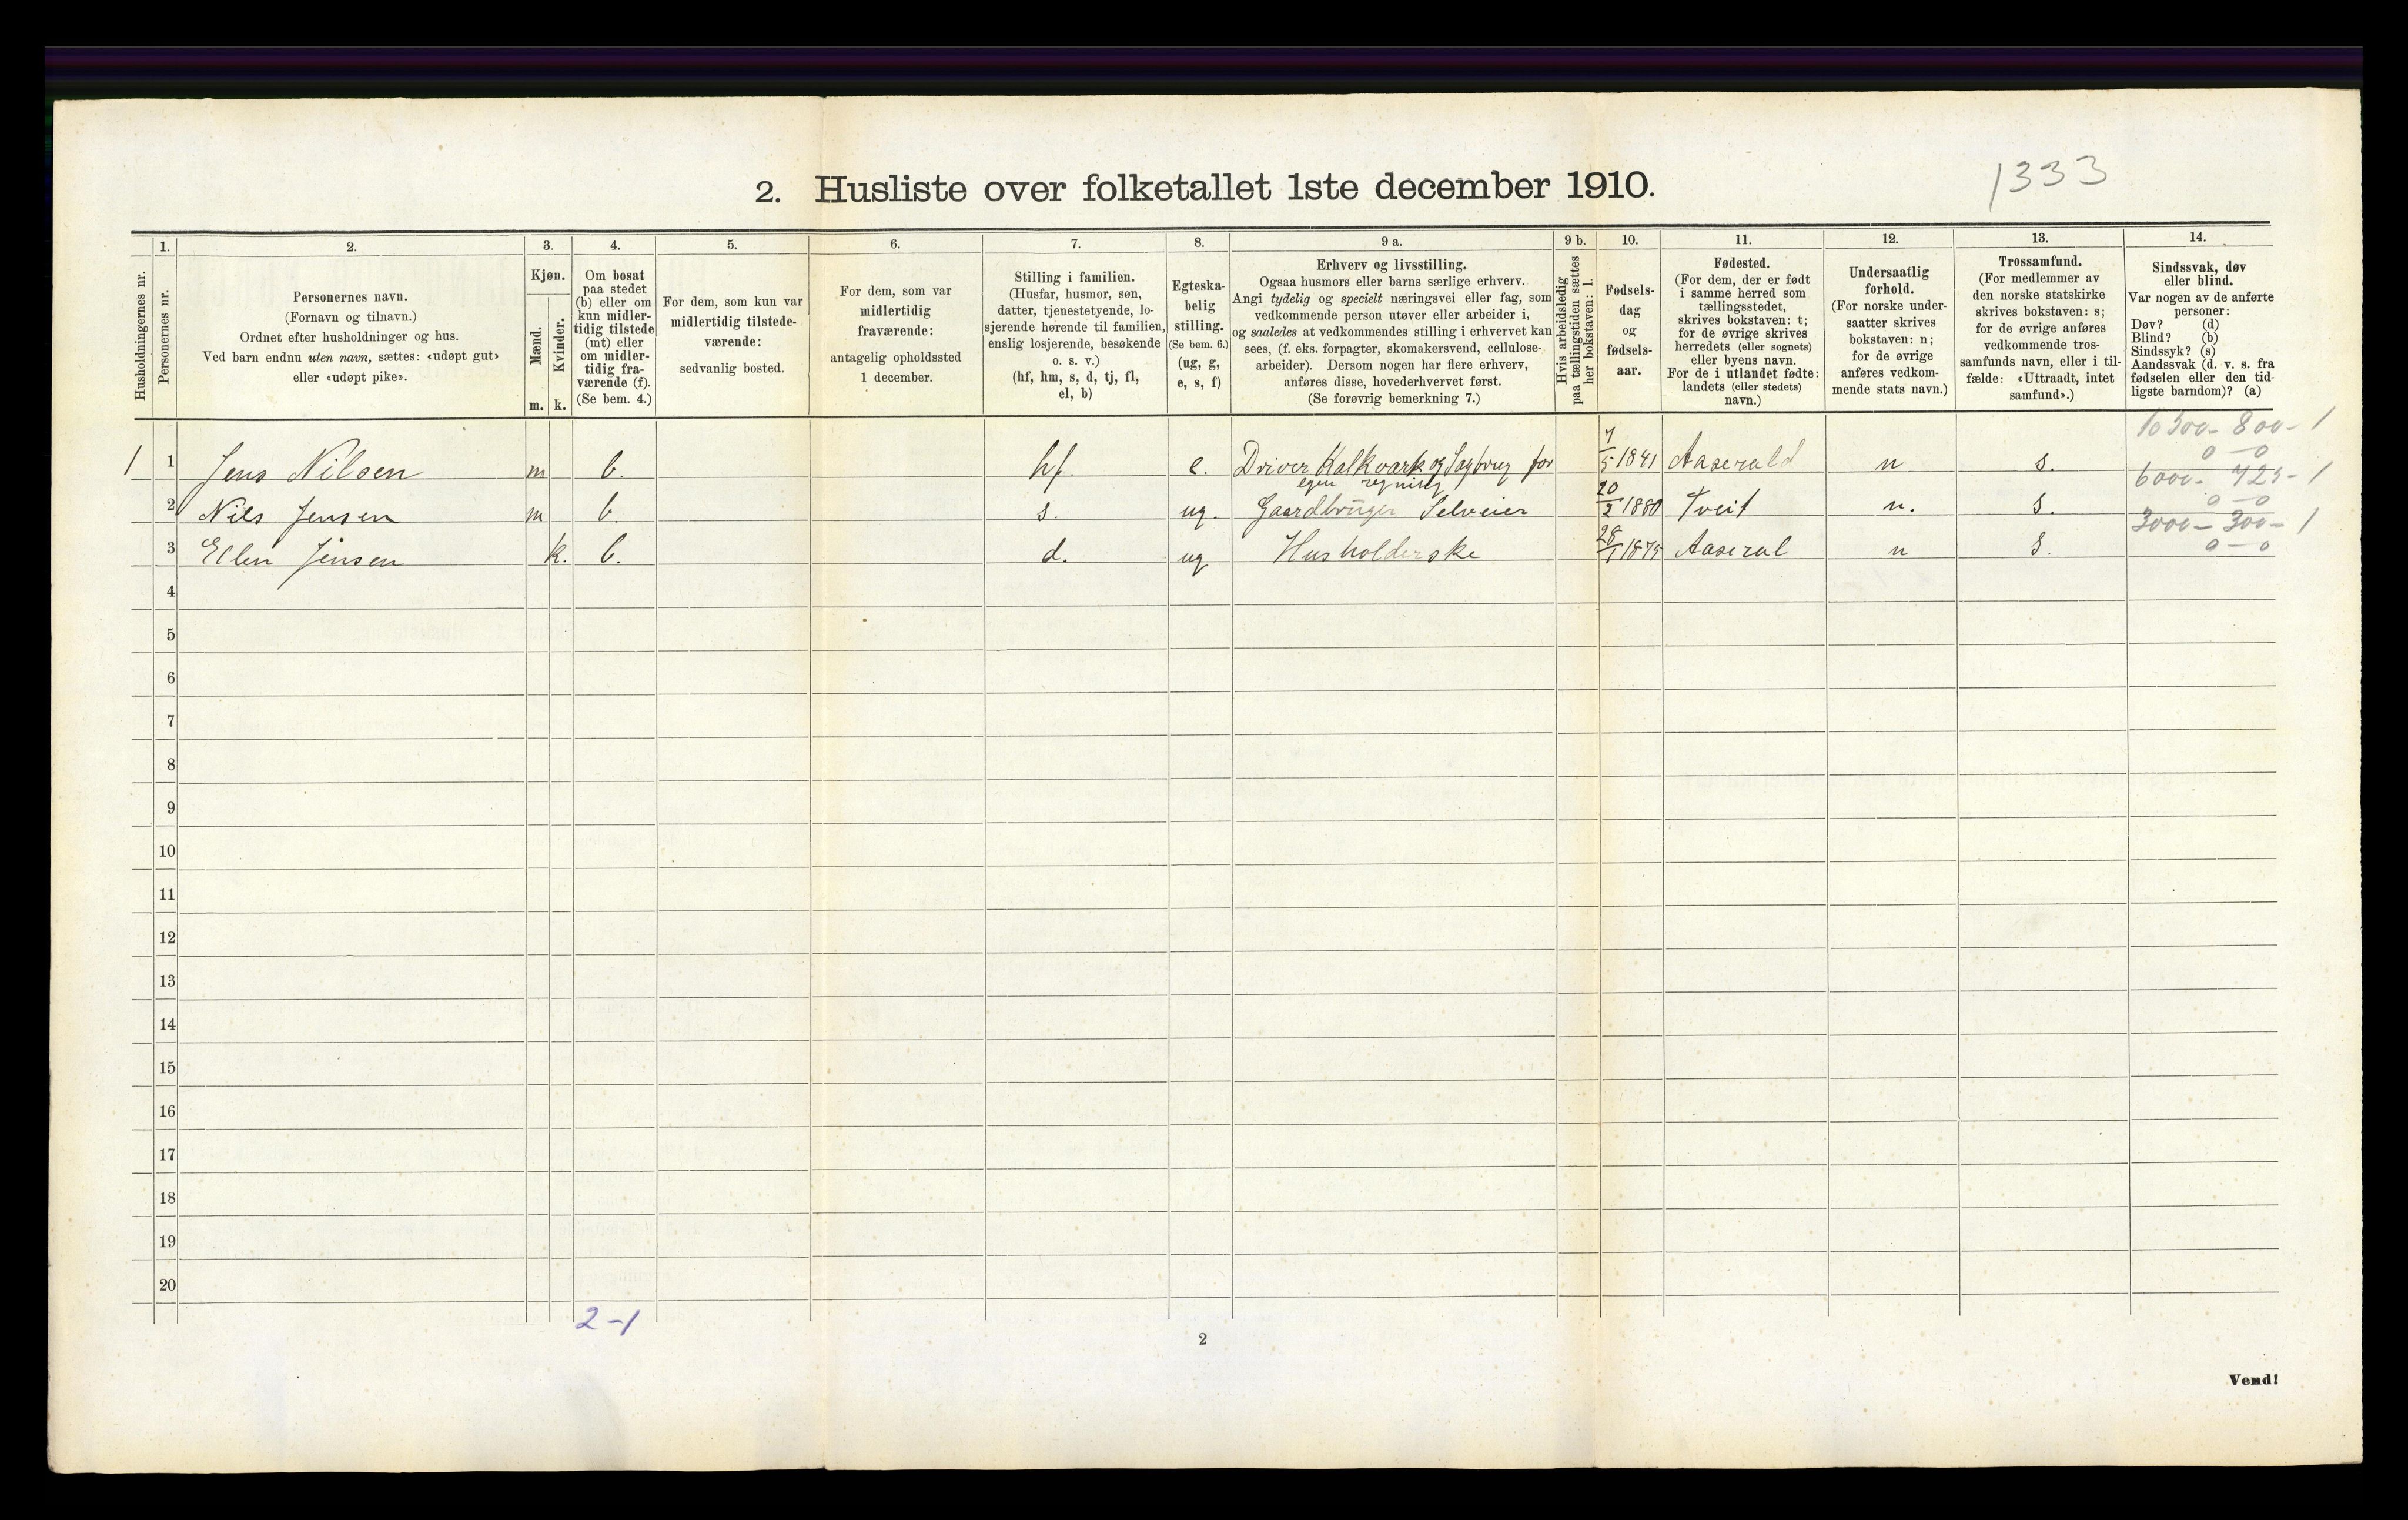 1333
2. Husliste over folketallet 1ste december 1910.
Husholdningernes nr.
1.
Personernes nr.
2.
Personernes navn.
(Fornavn og tilnavn.)
Ordnet efter husholdninger og hus.
Ved barn endnu uten navn, sættes: «udøpt gut»
eller «udøpt pike».
3.
Kjøn.
Mænd.
Kvinder.
m. k.
4.
Om bosat
paa stedet
(b) eller om
kun midler-
tidig tilstede
(mt) eller
om midler-
tidig fra-
værende (f).
(Se bem. 4.)
5.
For dem, som kun var
midlertidig tilstede-
værende:
sedvanlig bosted.
6.
For dem, som var
midlertidig
fraværende:
antagelig opholdssted
1 december.
7.
Stilling i familien.
(Husfar, husmor, søn,
datter, tjenestetyende, lo-
sjerende hørende til familien,
enslig losjerende, besøkende
o. s. v.)
(hf, hm, s, d, tj, fl,
el, b)
8.
Egteska-
belig
stilling.
(Se bem. 6.)
(ug, g,
e, s, f)
9 a.
Erhverv og livsstilling.
Ogsaa husmors eller barns særlige erhverv.
Angi tydelig og specielt næringsvei eller fag, som
vedkommende person utøver eller arbeider i,
og saaledes at vedkommendes stilling i erhvervet kan
sees, (f. eks. forpagter, skomakersvend, cellulose-
arbeider). Dersom nogen har flere erhverv,
anføres disse, hovederhvervet først.
(Se forøvrig bemerkning 7.)
9 b.
Hvis arbeidsledig
paa tællingstiden sættes
her bokstaven: l.
10.
Fødsels-
dag
og
fødsels-
aar.
11.
Fødested.
(For dem, der er født
i samme herred som
tællingsstedet,
skrives bokstaven: t;
for de øvrige skrives
herredets (eller sognets)
eller byens navn.
For de i utlandet fødte:
landets (eller stedets)
navn.)
12.
Undersaatlig
forhold.
(For norske under-
saatter skrives
bokstaven: n;
for de øvrige
anføres vedkom-
mende stats navn.)
13.
Trossamfund.
(For medlemmer av
den norske statskirke
skrives bokstaven: s;
for de øvrige anføres
vedkommende tros-
samfunds navn, eller i til-
fælde: «Uttraadt, intet
samfund».)
14.
Sindssvak, døv
eller blind.
Var nogen av de anførte
personer:
Døv? (d)
Blind? (b)
Sindssyk? (s)
Aandssvak (d. v. s. fra
fødselen eller den tid-
ligste barndom)? (a)
10300- 800- 1
0-0
1 1 Jens Nilsen m b. hf. e. Driver Kalkværk og Sagbrug for
egen regning 7/5 1841 Aaserald n s.
6000- 725- 1
0-0
2 Nils Jensen m b. s. ug. Gaardbruger Selveier 20/2 1880 Tveit n. s.
3000- 300- 1
0-0
3 Ellen Jensen k. b. d. ug Husholderske 28/1 1875 Aaseral n s.
4
5
6
7
8
9
10
11
12
13
14
15
16
17
18
19
20
2-1
2
Vend!